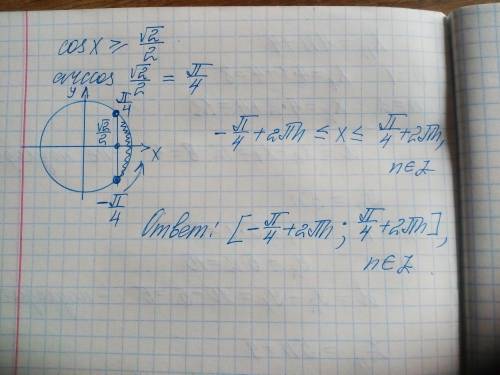 cosx ≥ √2/2
arccos √2/2 = π/4
y
π/4
√2/2
x
-π/4
-π/4+2πn ≤ x ≤ π/4+2πn,
n∈Z
Ответ: [-π/4+2πn; π/4+2πn],
n∈Z